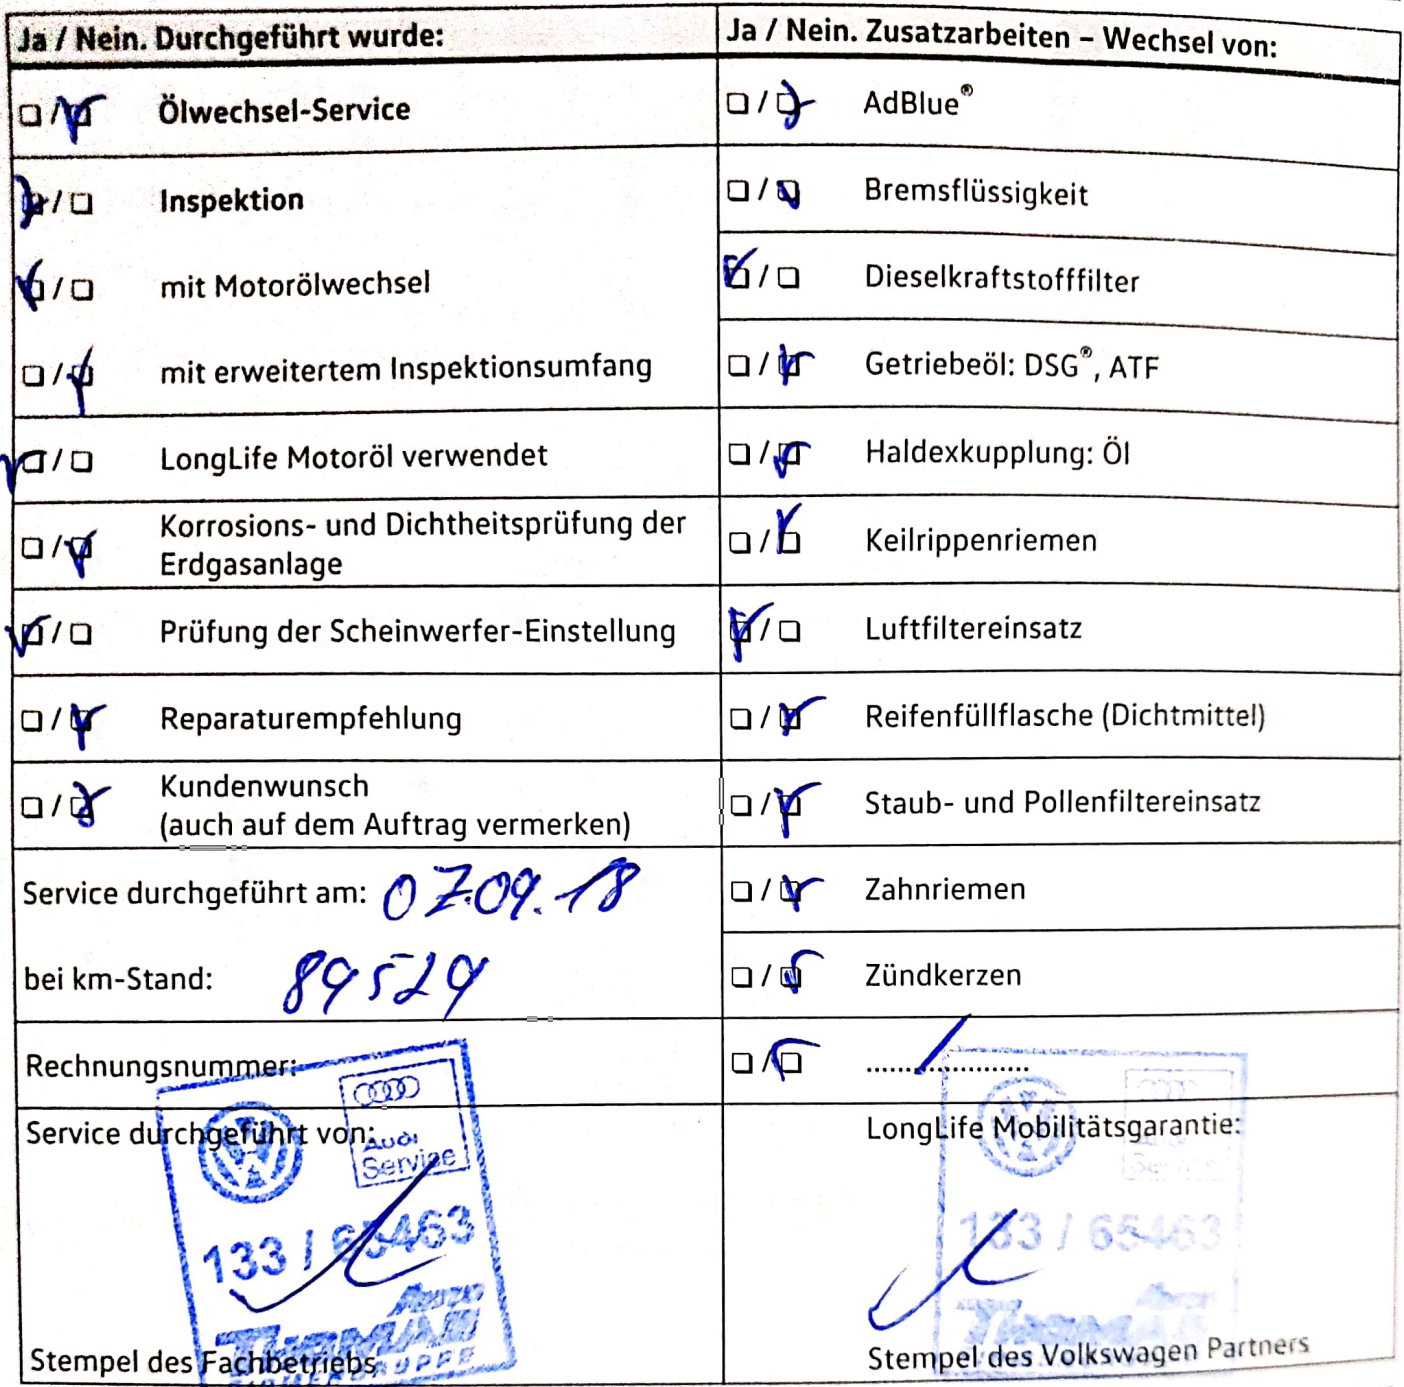 Ja / Nein. Durchgeführt wurde:
Ölwechsel-Service
Inspektion
mit Motorölwechsel
mit erweitertem Inspektionsumfang
LongLife Motoröl verwendet
Korrosions- und Dichtheitsprüfung der
Erdgasanlage
Prüfung der Scheinwerfer-Einstellung
Reparaturempfehlung
Kundenwunsch
(auch auf dem Auftrag vermerken)
Service durchgeführt am: 07.09.18
bei km-Stand: 89529
Rechnungsnummer:
Service durchgeführt von:
Audi
Service
133 / 65463
Stempel des Fachbetriebs
Ja / Nein. Zusatzarbeiten – Wechsel von:
AdBlue®
Bremsflüssigkeit
Dieselkraftstofffilter
Getriebeöl: DSG®, ATF
Haldexkupplung: Öl
Keilrippenriemen
Luftfiltereinsatz
Reifenfüllflasche (Dichtmittel)
Staub- und Pollenfiltereinsatz
Zahnriemen
Zündkerzen
LongLife Mobilitätsgarantie:
133 / 65463
Stempel des Volkswagen Partners